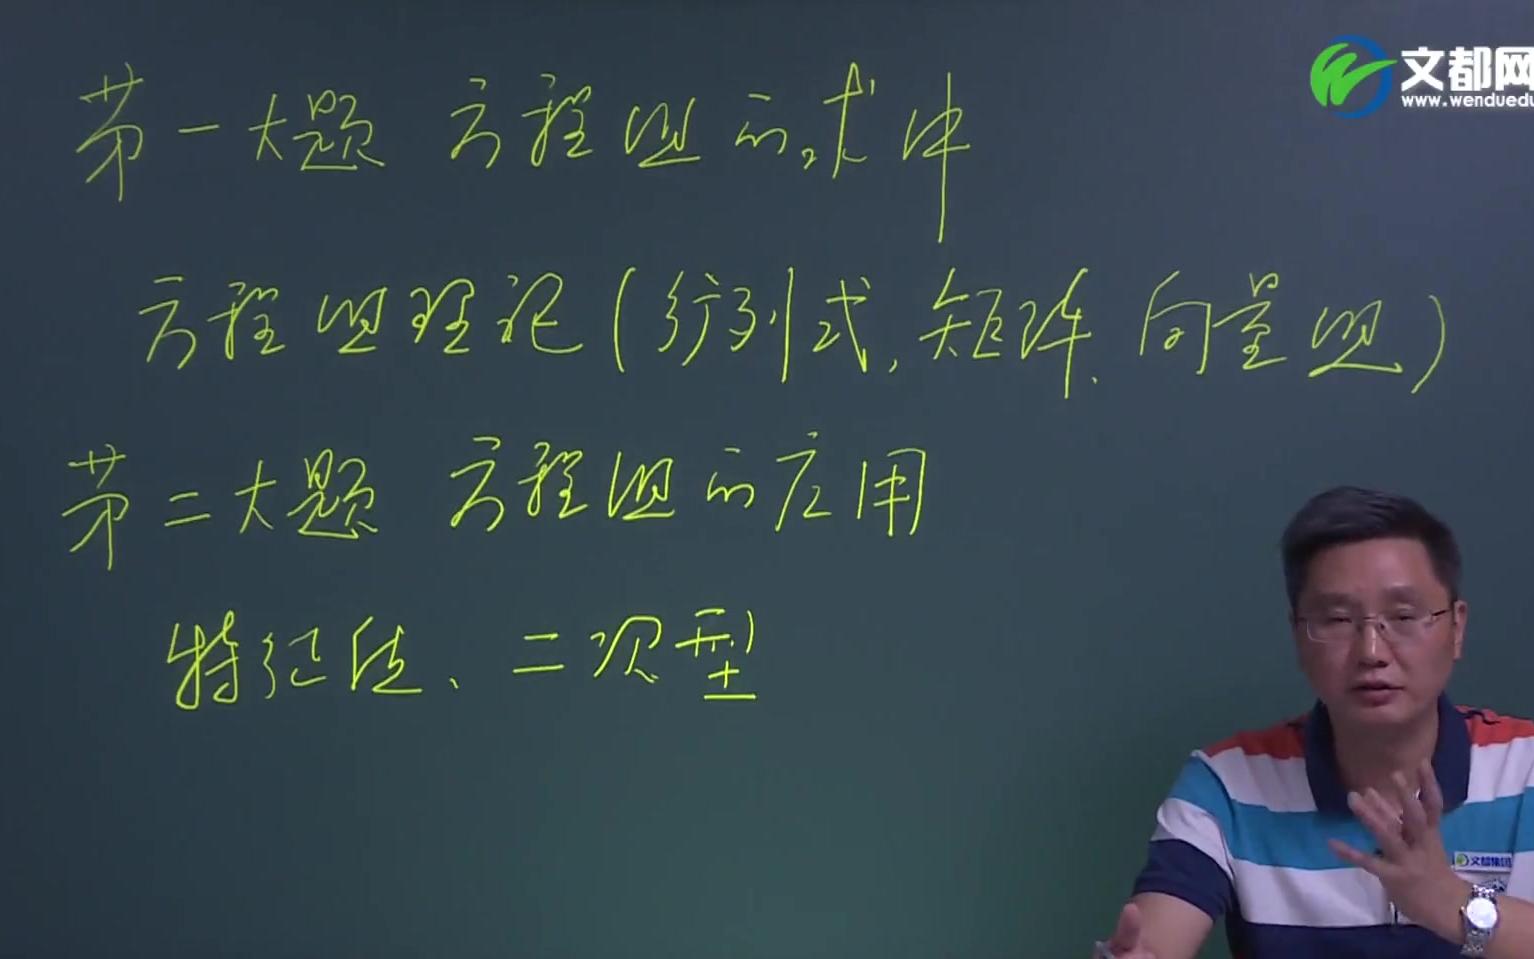 文都网
www.wenduedu
第一大题 方程组的求解
方程组理论(行列式,矩阵、向量组)
第二大题 方程组的应用
特征值、二次型
文都集团